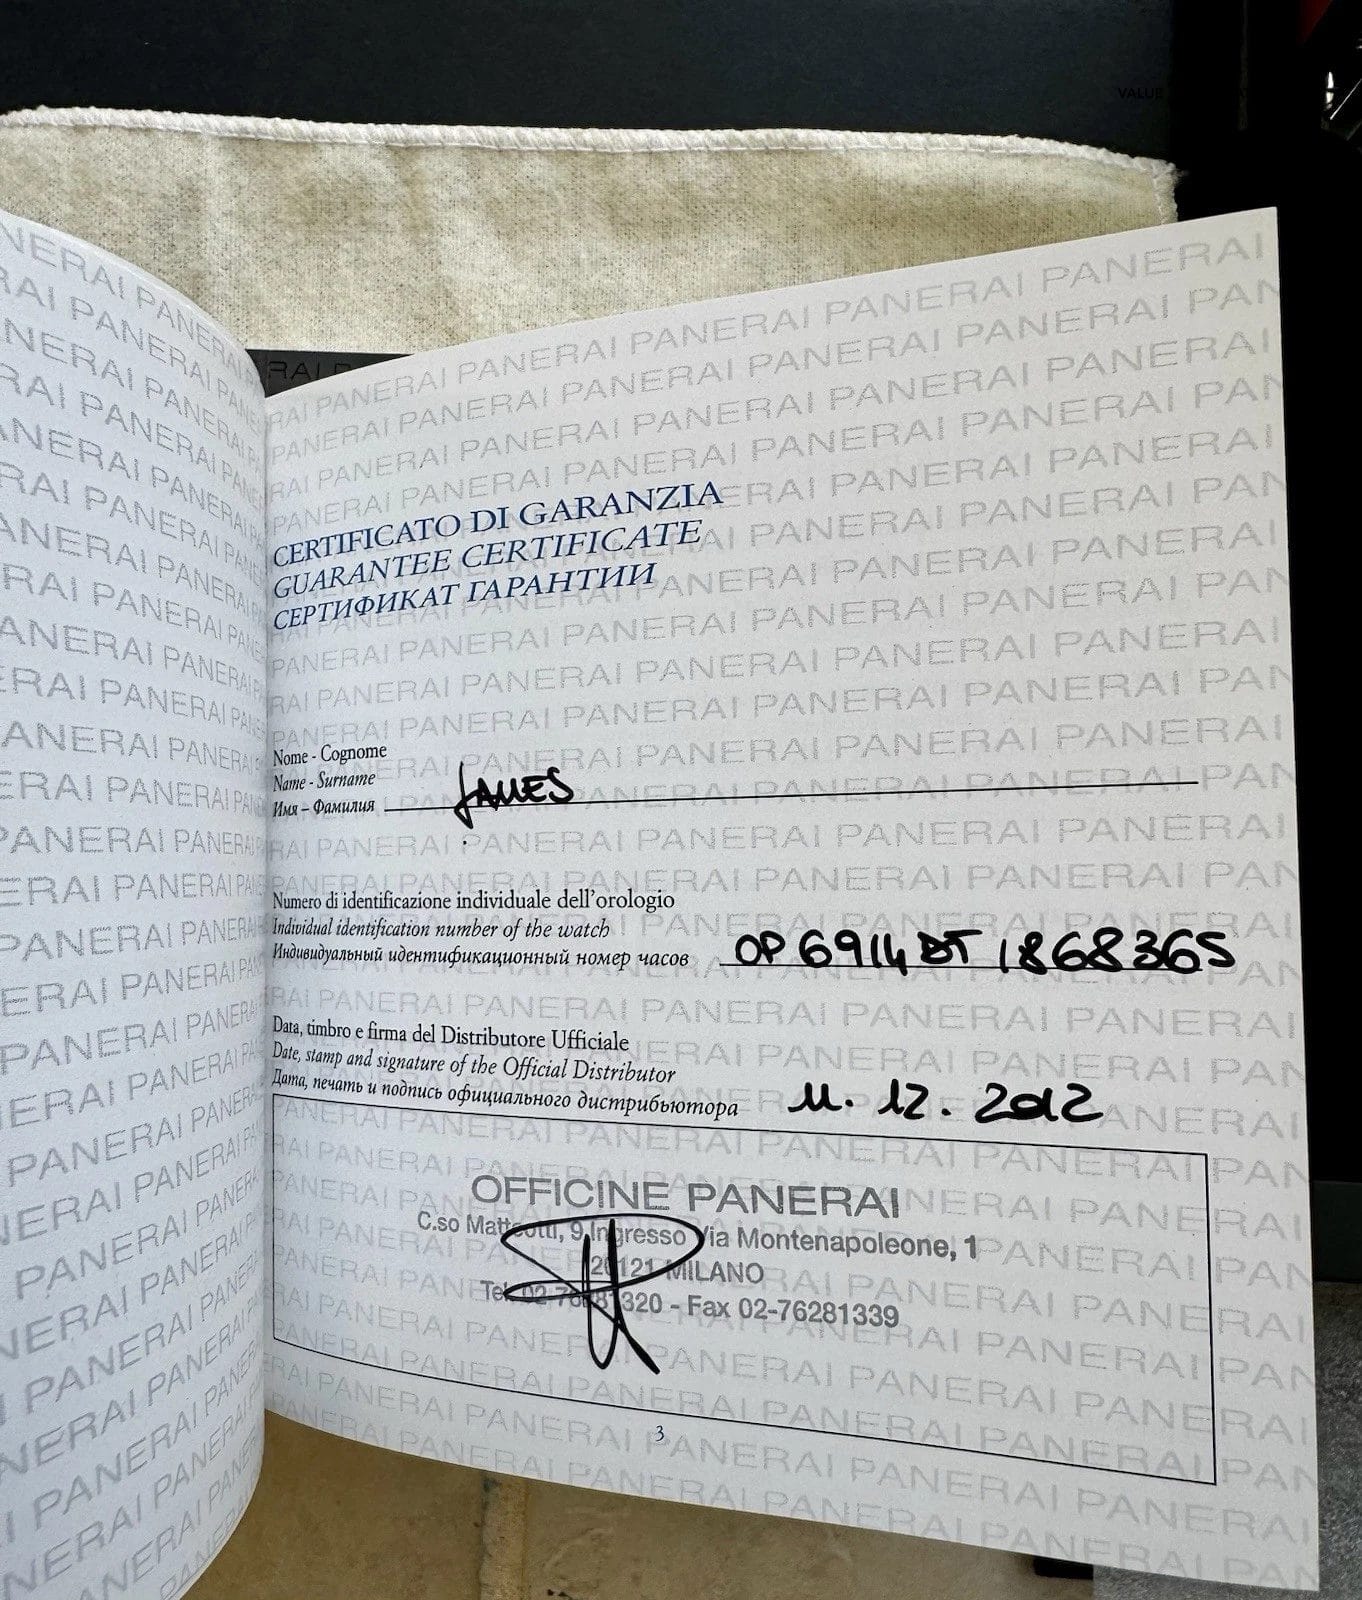 VALUE
CERTIFICATO DI GARANZIA
GUARANTEE CERTIFICATE
СЕРТИФИКАТ ГАРАНТИИ
Nome - Cognome
Name - Surname
Имя – Фамилия JAMES
Numero di identificazione individuale dell'orologio
Individual identification number of the watch
Индивидуальный идентификационный номер часов OP 6914 BT 1868365
Data, timbro e firma del Distributore Ufficiale
Date, stamp and signature of the Official Distributor
Дата, печать и подпись официального дистрибьютора 11. 12. 2012
OFFICINE PANERAI
C.so Matteotti, 9 Ingresso Via Montenapoleone, 1
20121 MILANO
Tel. 02-76281320 - Fax 02-76281339
3